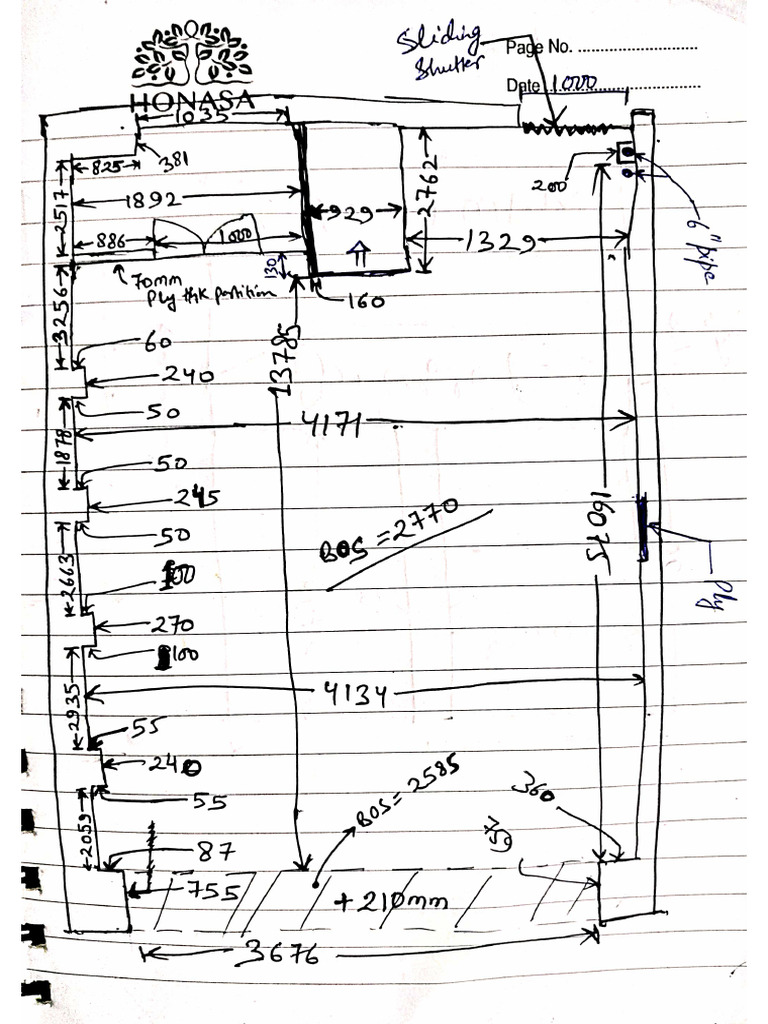 Sliding
Shutter
Page No.
Date 1000
HONASA
1035
825
381
200
2762
2517
1892
929
6" pipe
886
1000
1329
130
70mm
Ply thk partition
160
3256
13785
60
240
50
4171
1878
50
245
50
BOS = 2770
16075
2663
100
270
100
Ply
4134
2935
55
240
55
BOS = 2585
360
2059
87
755
+210mm
3676